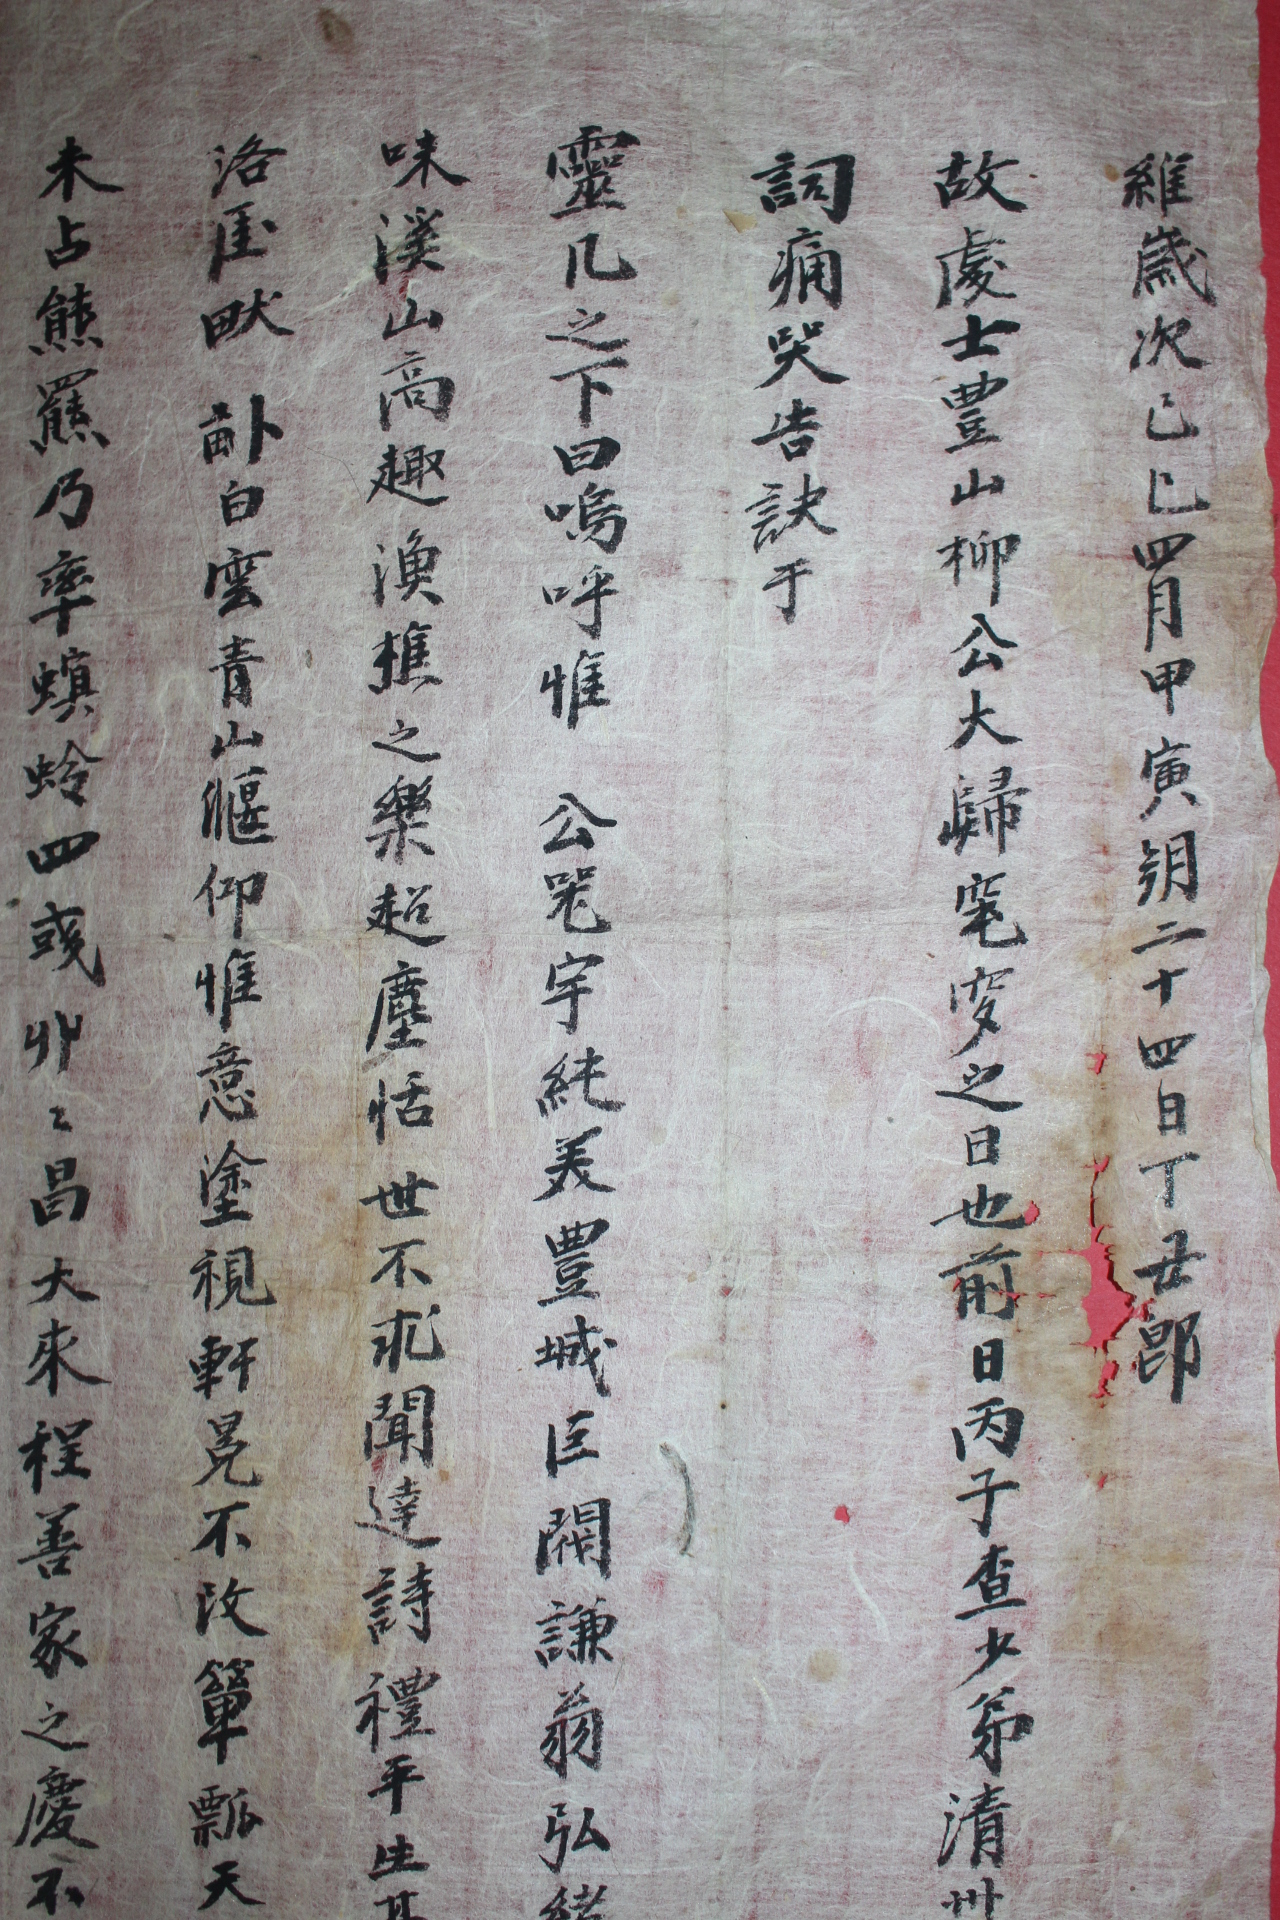 維歲次己巳四月甲寅朔二十四日丁丑卽
故處士豊山柳公大歸窀穸之日也前日丙子査少弟清州
詞痛哭告訣于
靈几之下曰嗚呼惟 公器宇純美豊城巨閥謙翁弘緖
味溪山高趣漁樵之樂超塵恬世不求聞達詩禮平生其
洛厓畎畝臥白雲青山偃仰惟意塗視軒冕不改簞瓢天
未占熊羆乃率螟蛉四彧丱〻昌大來程善家之慶不